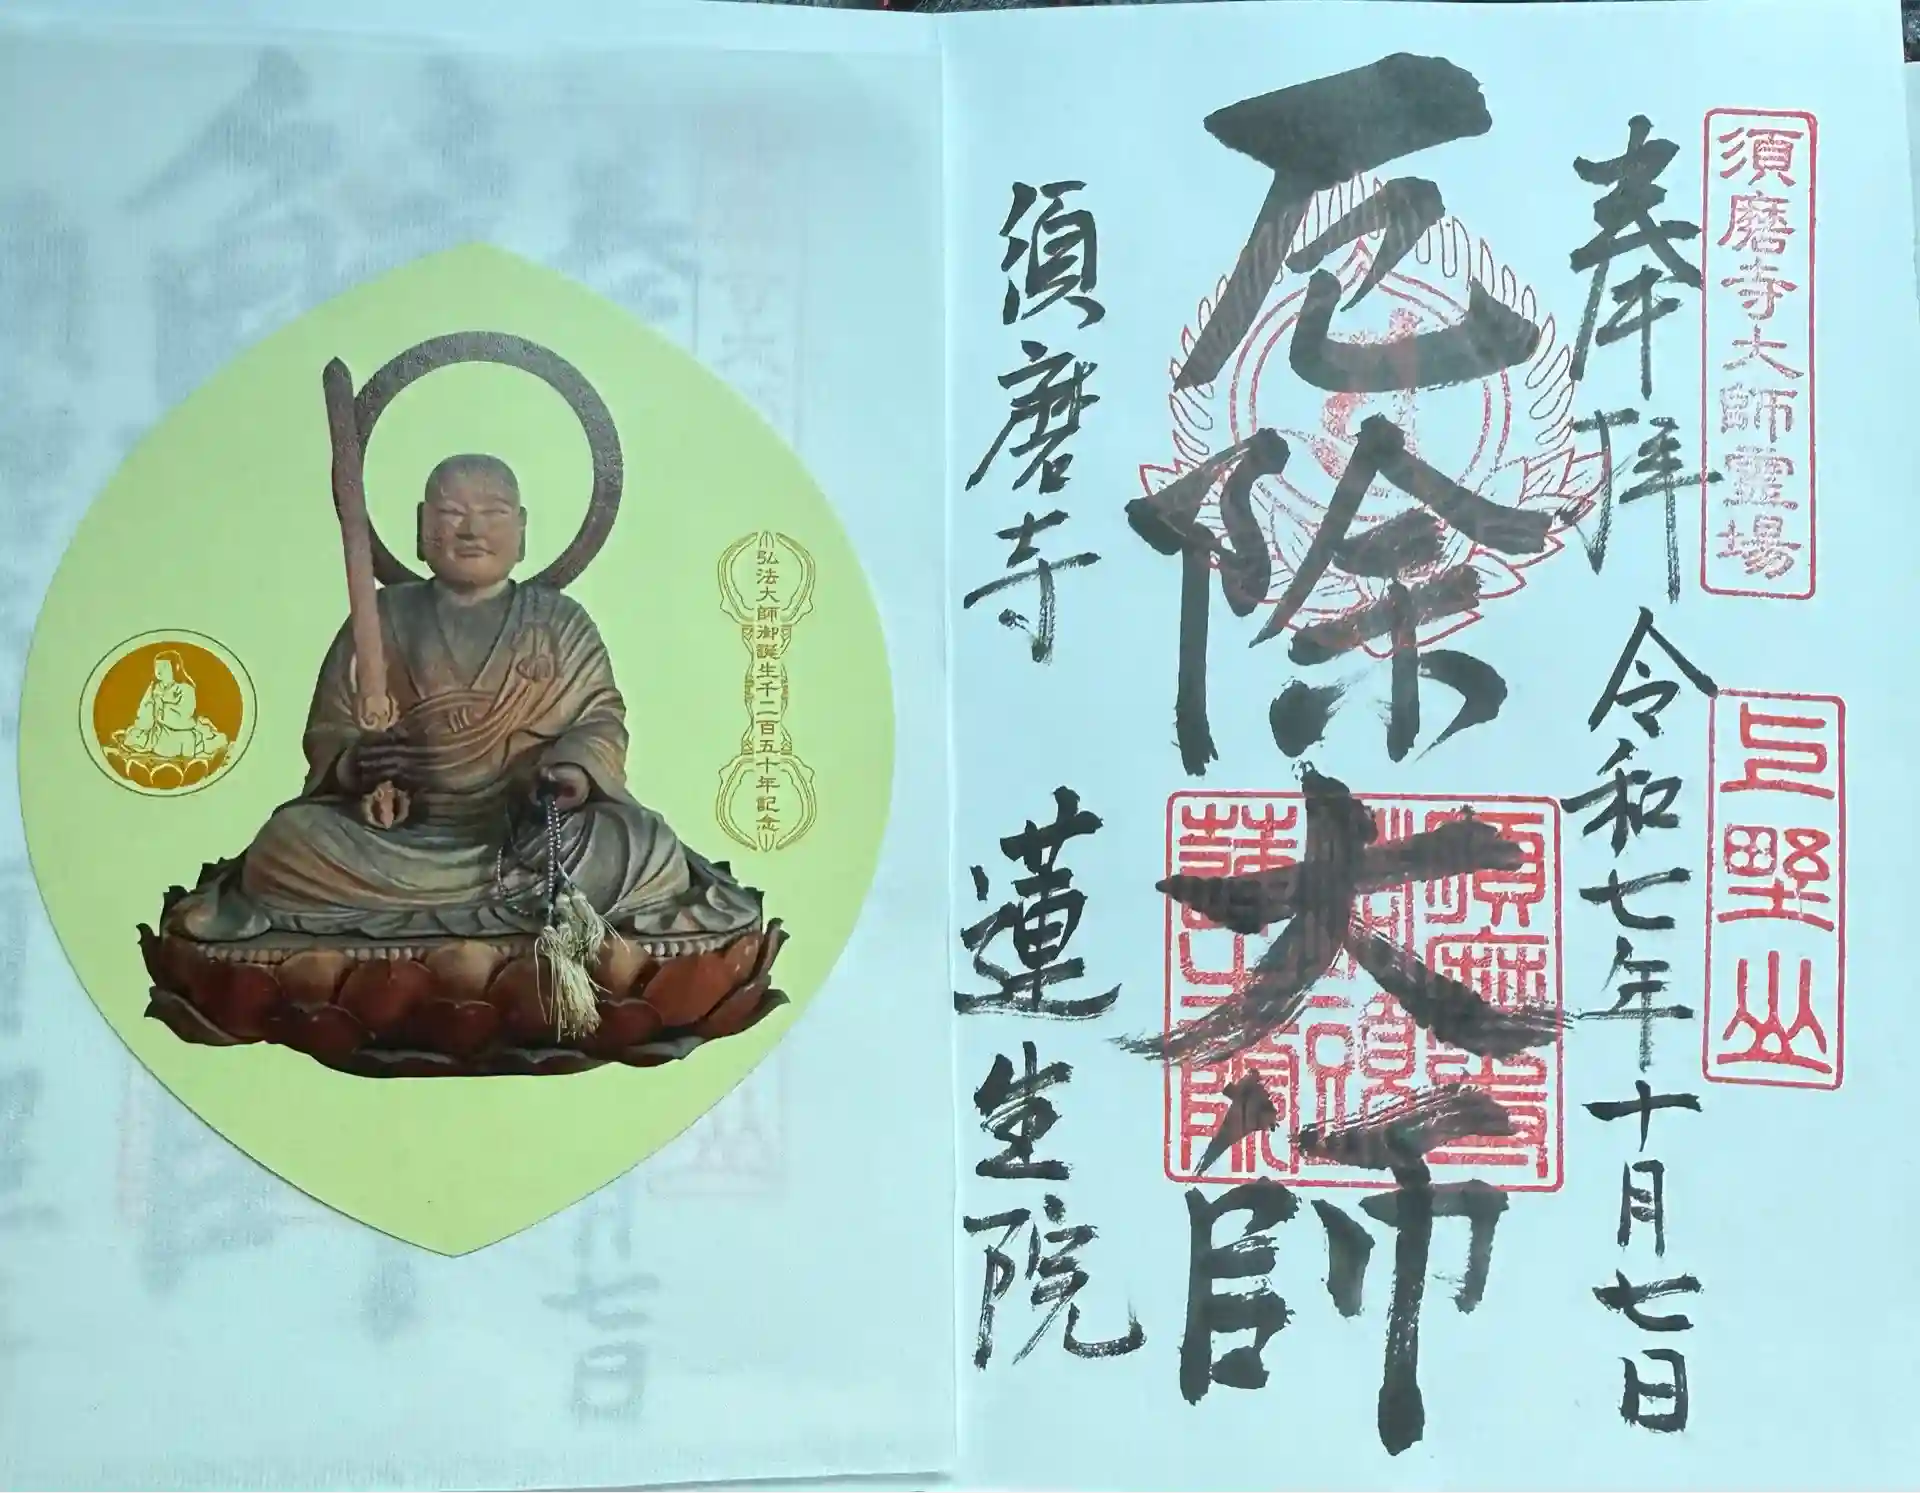 須磨寺大師霊場
上野山
奉拝
令和七年十月七日
厄除大師
須磨寺
蓮生院
弘法大師御誕生千二百五十年記念